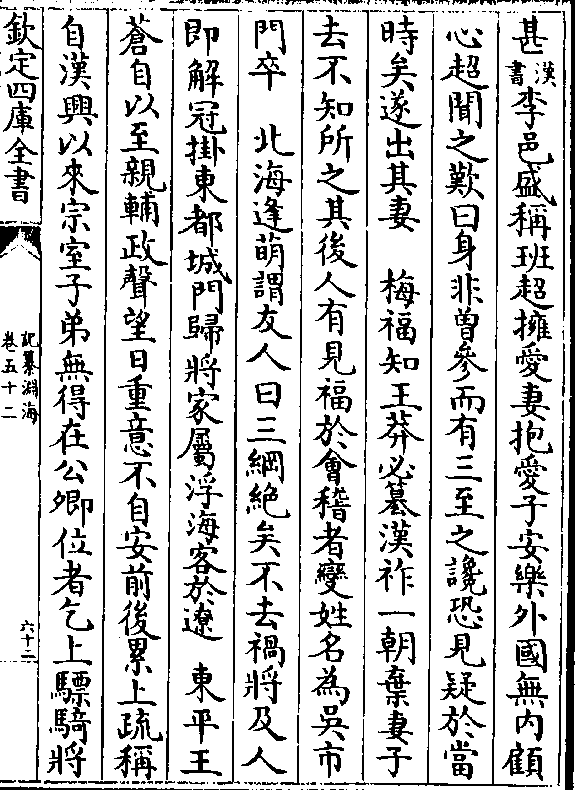 甚漢書李邑盛稱班超擁愛妻抱愛子安樂外國無内顧
心超聞之歎曰身非曾參而有三至之讒恐見疑於當
時矣遂出其妻　梅福知王莽必簒漢祚一朝棄妻子
去不知所之其後人有見福於會稽者變姓名為吳市
門卒　北海逢萌謂友人曰三綱絶矣不去禍將及人
即解冠掛東都城門歸將家屬浮海客於遼　東平王
蒼自以至親輔政聲望日重意不自安前後累上疏稱
自漢興以來宗室子弟無得在公卿位者乞上驃騎將
欽定四庫全書
記纂淵海
卷五十二
六十二